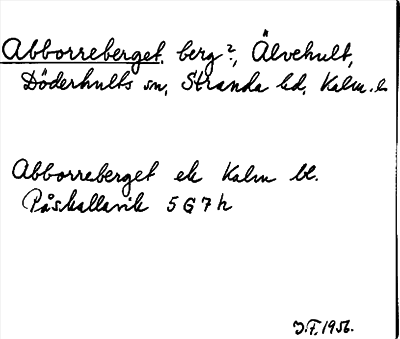 Abborreberget, berg?, Älvehult,
Döderhults sn, Stranda hd, Kalm. l.
Abborreberget ek Kalm bl.
Påskallavik 5G7h
J.F. 1956.